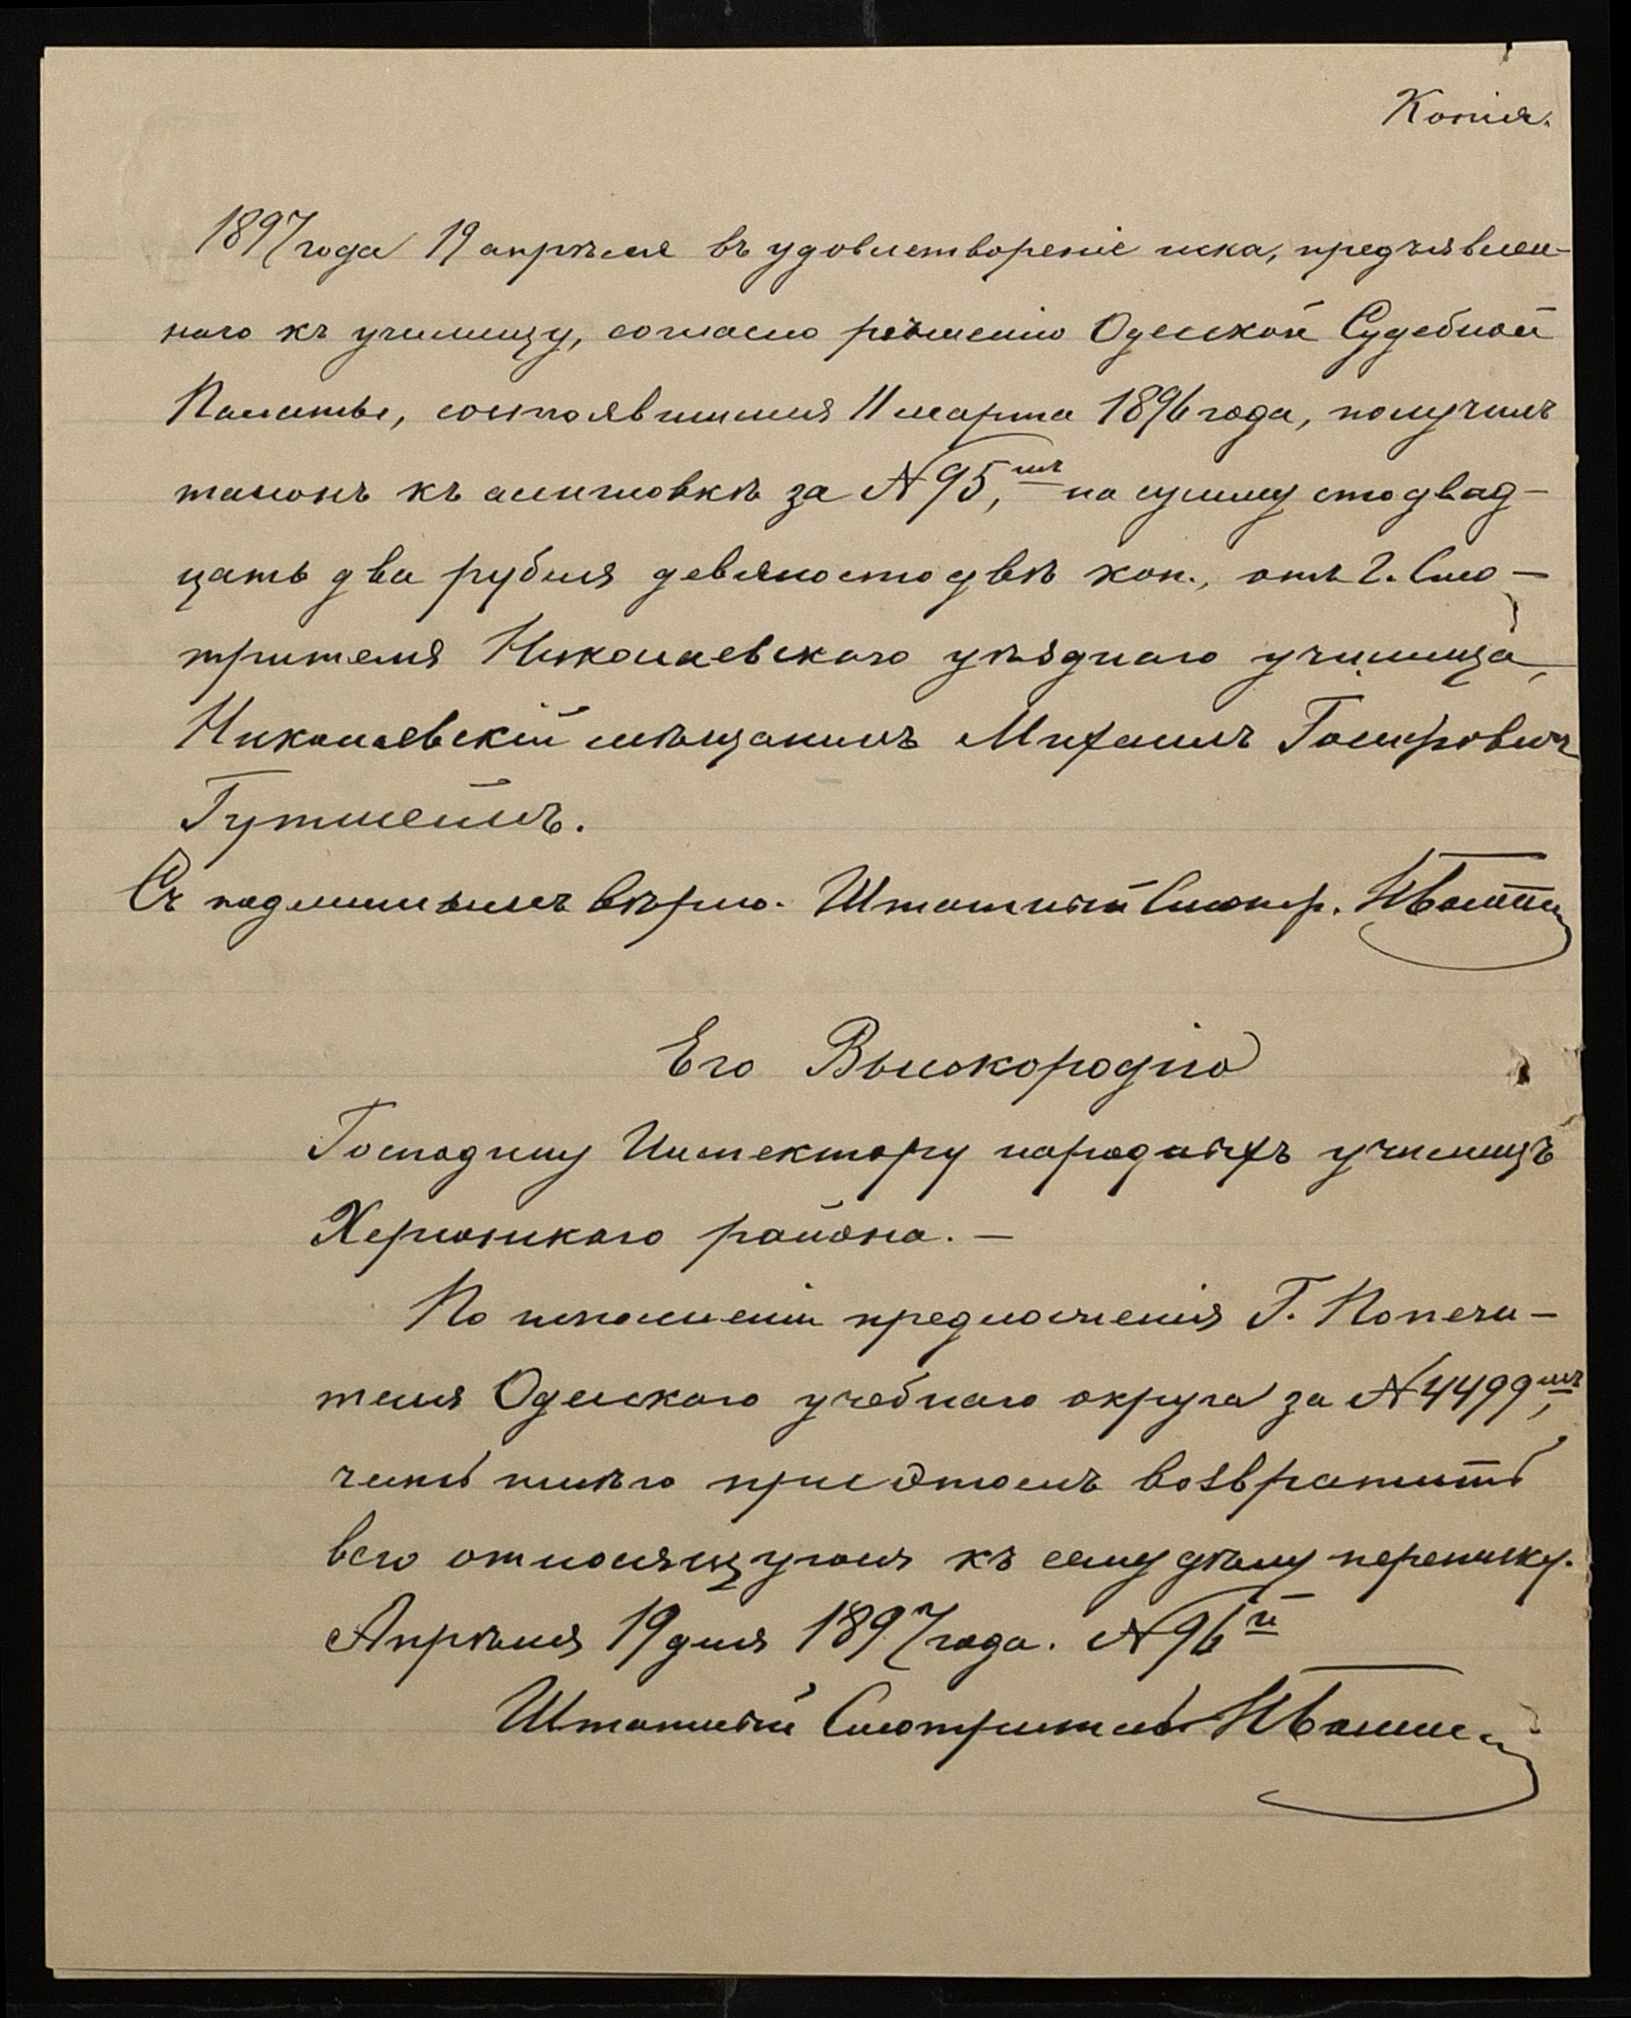 Копія.
1897 года 19 апрѣля въ удовлетвореніе иска, предъявлен-
наго къ училищу, согласно рѣшенію Одесской Судебной
Палаты, состоявшимся 11 марта 1896 года, получилъ
талонъ къ асигновкѣ за № 95,мъ на сумму сто двад-
цать два рубля девяносто двѣ коп., отъ Г. Смо-
трителя Николаевскаго уѣзднаго училища,
Николаевскій мѣщанинъ Михаилъ
Съ подлиннымъ вѣрно. Штатный Смотр.
Его Высокородію
Господину Инспектору народныхъ училищъ
Херсонскаго района. —
По исполненіи предложенія Г. Попечи-
теля Одесскаго учебнаго округа за № 4499мъ,
честь имѣю при этомъ возвратить
всю относящуюся къ сему дѣлу переписку.
Апрѣля 19 дня 1897 года. № 96й
Штатный Смотритель